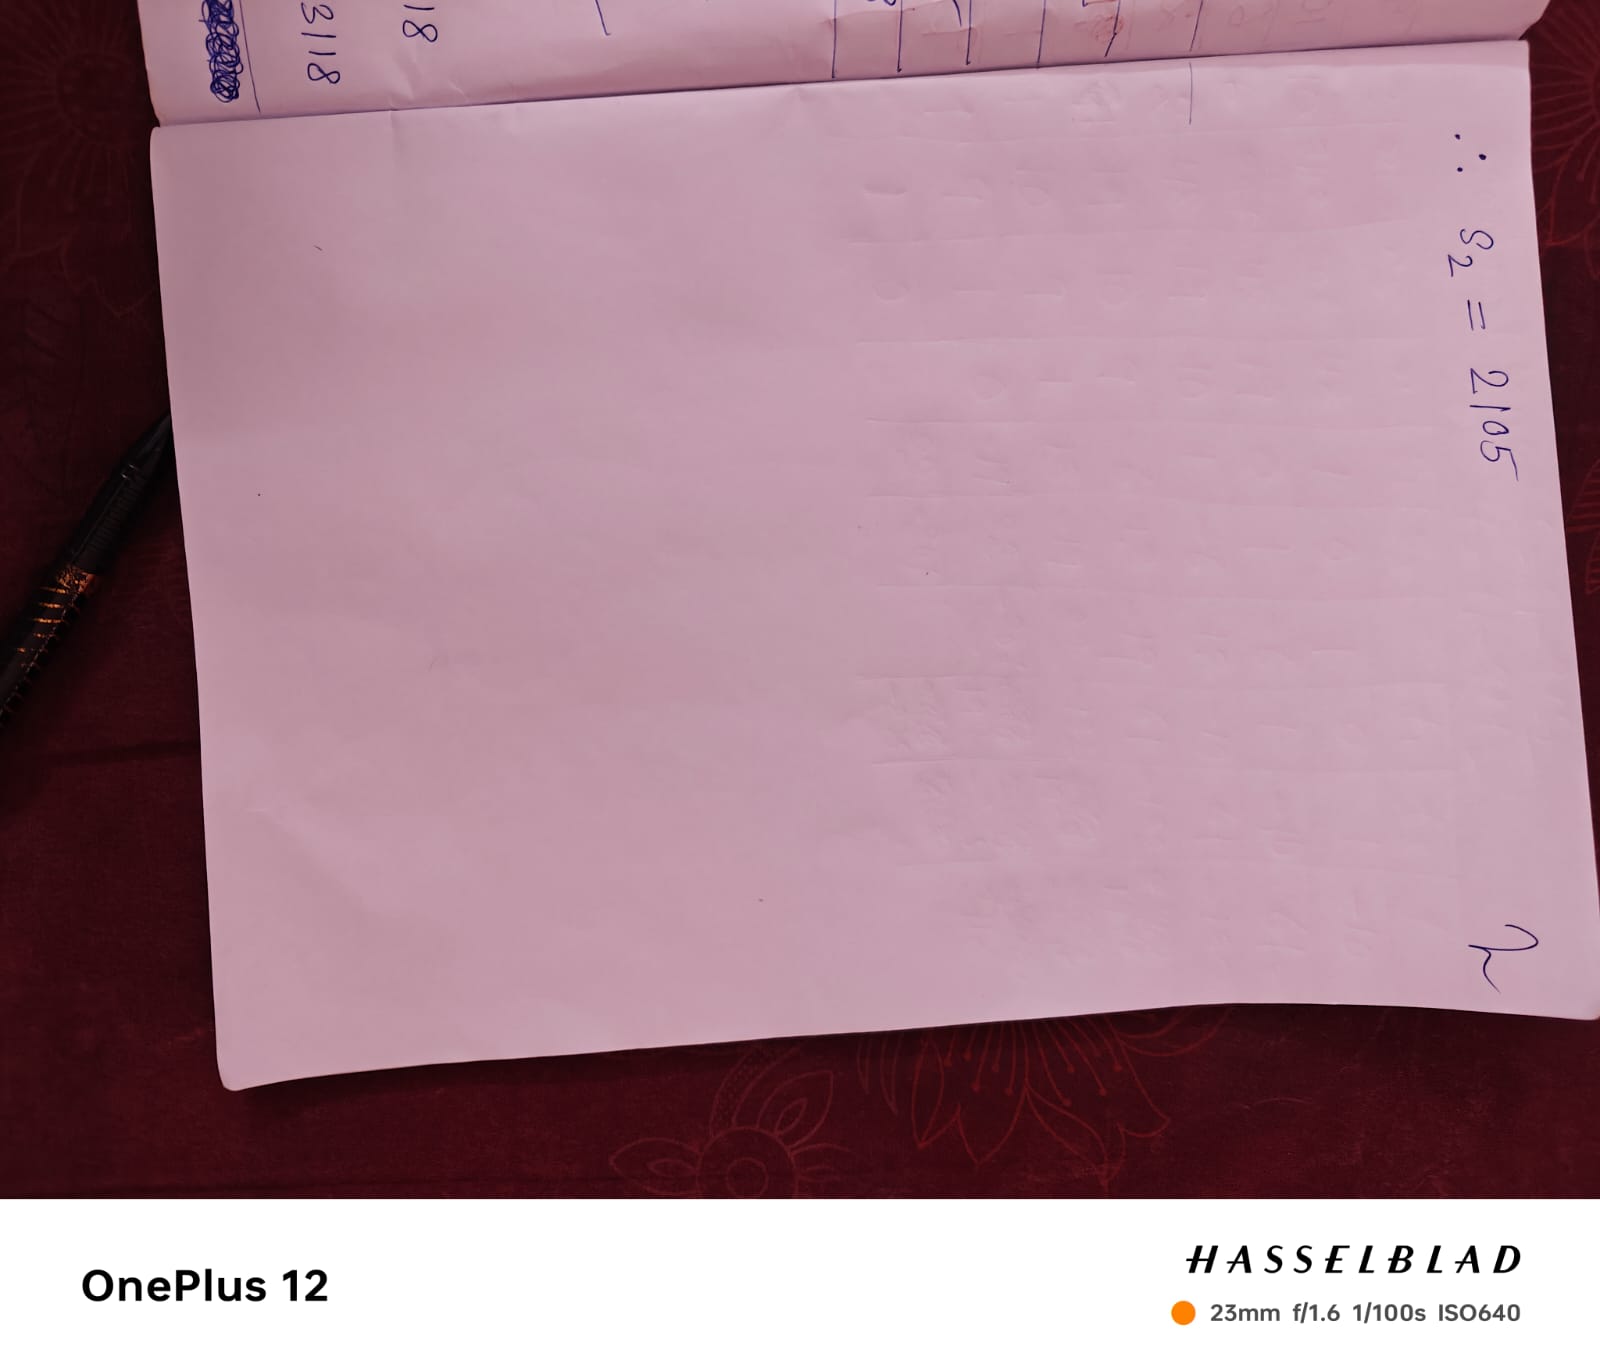 18
3118
∴ S₂ = 2105
OnePlus 12
HASSELBLAD
23mm f/1.6 1/100s ISO640